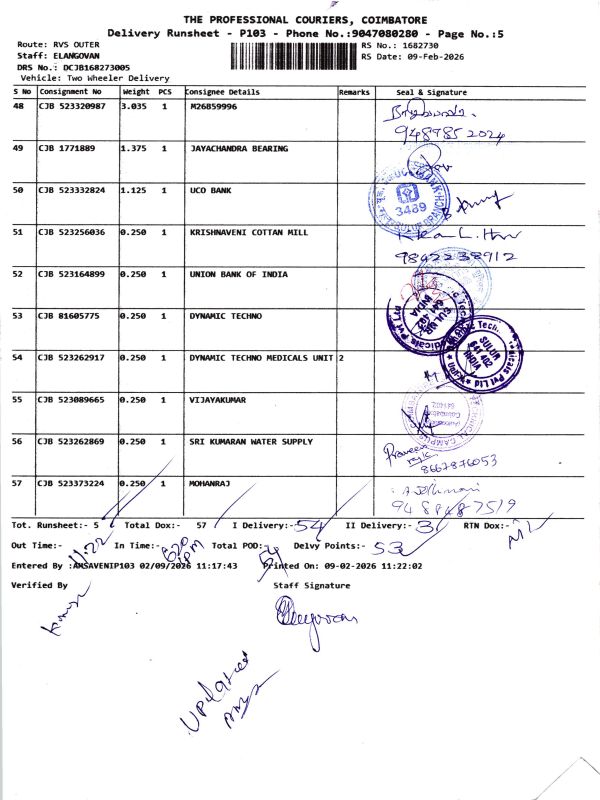 THE PROFESSIONAL COURIERS, COIMBATORE
Delivery Runsheet - P103 - Phone No.:9047080280 - Page No.:5
Route: RVS OUTER RS No.: 1682730
Staff: ELANGOVAN RS Date: 09-Feb-2026
DRS No.: DCJB168273005
Vehicle: Two Wheeler Delivery
S No Consignment No Weight PCS Consignee Details Remarks Seal & Signature
48 CJB 523320987 3.035 1 M26859996
9489852024
49 CJB 1771889 1.375 1 JAYACHANDRA BEARING
50 CJB 523332824 1.125 1 UCO BANK
3489
51 CJB 523256036 0.250 1 KRISHNAVENI COTTAN MILL
9842238912
52 CJB 523164899 0.250 1 UNION BANK OF INDIA
53 CJB 81605775 0.250 1 DYNAMIC TECHNO
SULUR 641 402 INDIA
54 CJB 523262917 0.250 1 DYNAMIC TECHNO MEDICALS UNIT 2
SULUR 641 402 INDIA
55 CJB 523089665 0.250 1 VIJAYAKUMAR
56 CJB 523262869 0.250 1 SRI KUMARAN WATER SUPPLY
Praveen
8667876053
57 CJB 523373224 0.250 1 MOHANRAJ
9488487519
Tot. Runsheet:- 5 Total Dox:- 57 I Delivery:- 54 II Delivery:- 3 RTN Dox:- NIL
Out Time:- 11:22 In Time:- 620 PM Total POD:- 54 Delvy Points:- 53
Entered By :AMSAVENIP103 02/09/2026 11:17:43 Printed On: 09-02-2026 11:22:02
Verified By Staff Signature
Updated